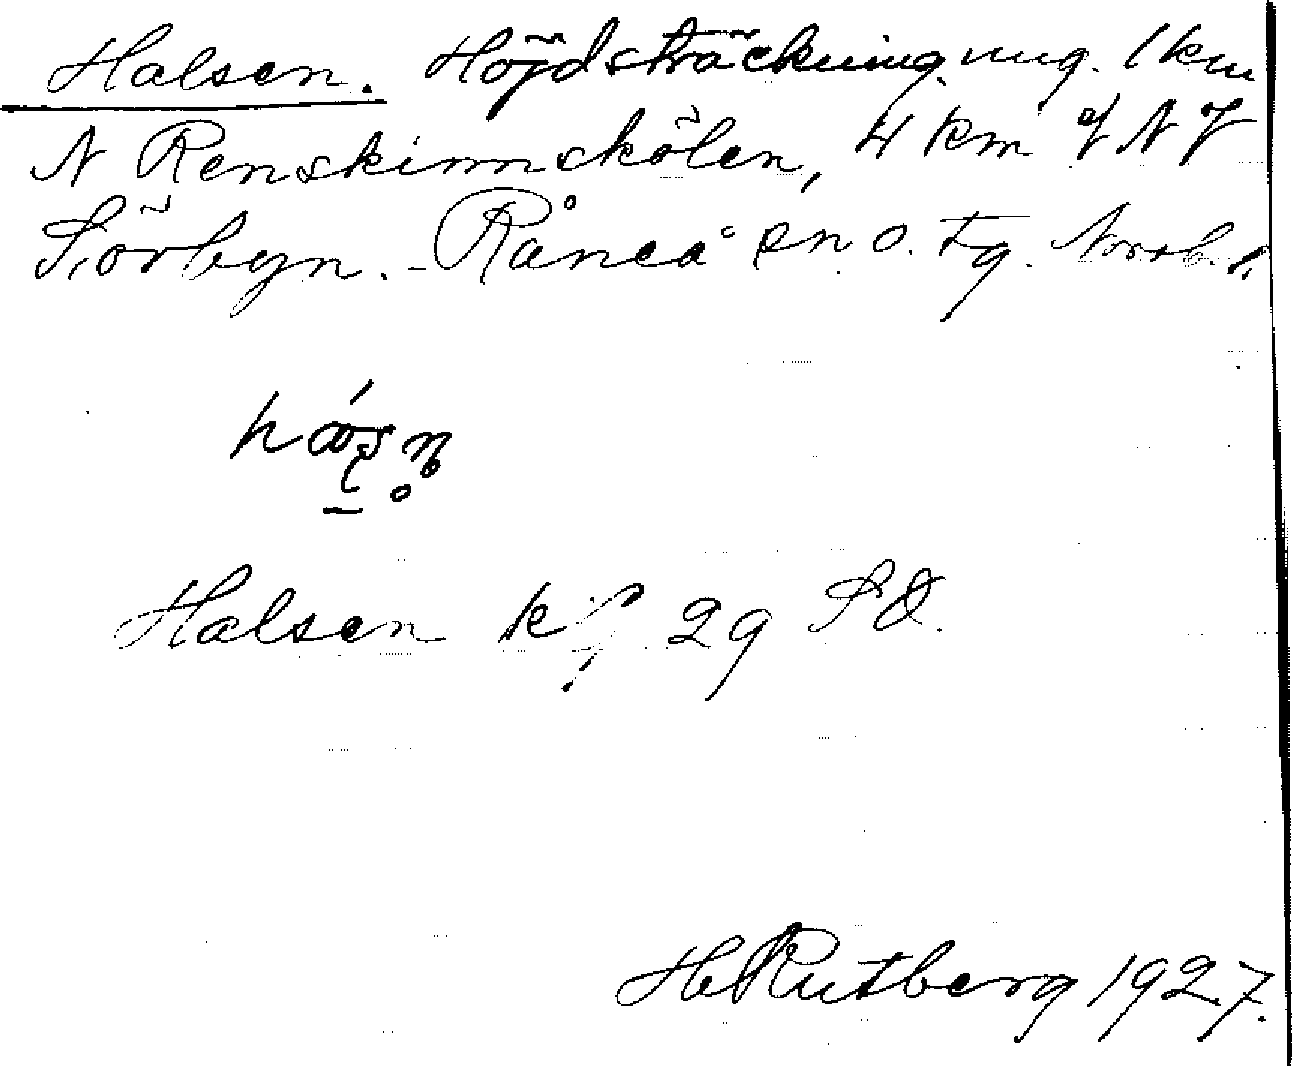 Halsen. Höjdsträckning ung. 1 km
N Renskinnskölen, 4 km
Sörbyn. - Råneå sn o. tg. Norrb. l.
Halsen kf 29 SO.
H Rutberg 1927.